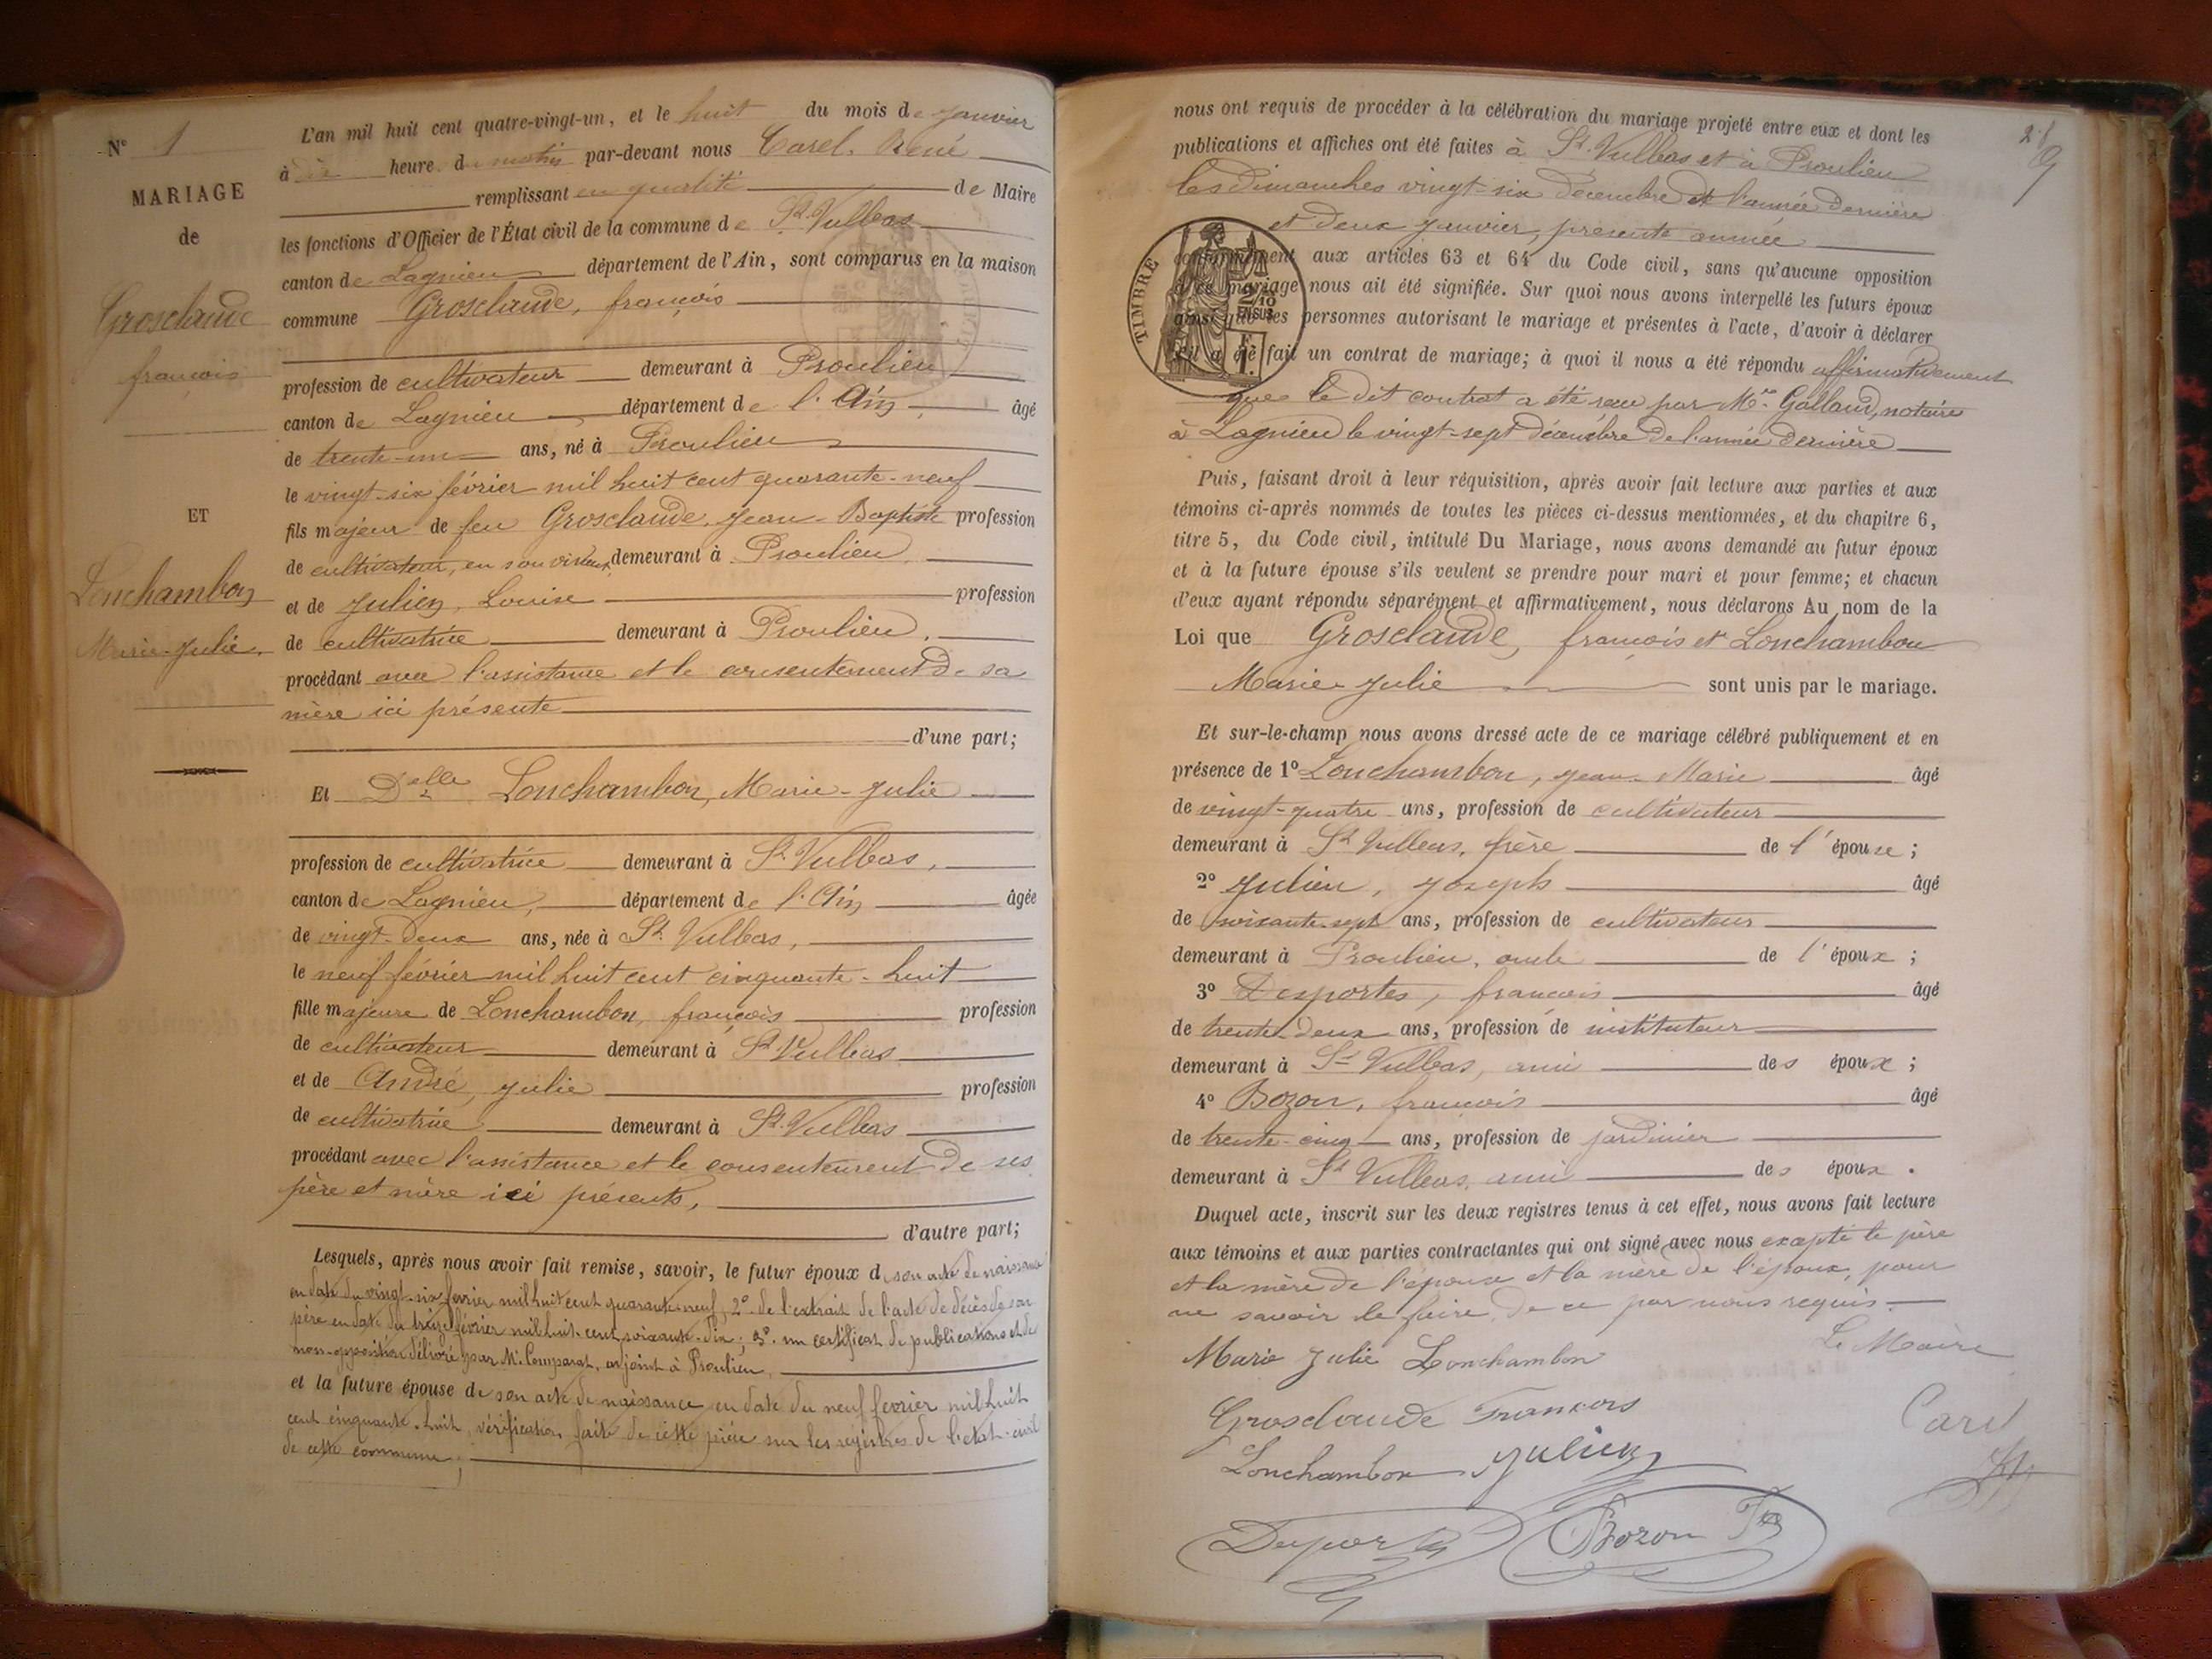 N° 1
MARIAGE
de
Grosclaude
françois
ET
Lonchambon
Marie-Julie.
L'an mil huit cent quatre-vingt-un, et le huit du mois de janvier
à dix heure du matin par-devant nous Carel. René
remplissant en qualité de Maire
les fonctions d'Officier de l'État civil de la commune de St. Vulbas
canton de Lagnieu département de l'Ain, sont comparus en la maison
commune Grosclaude, françois
profession de cultivateur demeurant à Proulieu
canton de Lagnieu département de l'Ain, âgé
de trente-un ans, né à Proulieu
le vingt-six février mil huit cent quarante-neuf
fils majeur de feu Grosclaude, Jean-Baptiste profession
de cultivateur, en son vivant, demeurant à Proulieu,
et de Julien, Louise profession
de cultivatrice demeurant à Proulieu,
procédant avec l'assistance et le consentement de sa
mère ici présente
d'une part;
Et Delle Lonchambon, Marie-Julie
profession de cultivatrice demeurant à St Vulbas,
canton de Lagnieu, département de l'Ain âgée
de vingt-deux ans, née à St. Vulbas,
le neuf février mil huit cent cinquante-huit
fille majeure de Lonchambon, françois profession
de cultivateur demeurant à St. Vulbas
et de André, Julie profession
de cultivatrice demeurant à St. Vulbas
procédant avec l'assistance et le consentement de ses
père et mère ici présents,
d'autre part;
Lesquels, après nous avoir fait remise, savoir, le futur époux de son acte de naissance
en date du vingt-six février mil huit cent quarante-neuf, 2° de l'extrait de l'acte de décès de son
père en date du treize février mil huit-cent soixante-dix; 3° un certificat de publications et de
non-opposition délivré par Mr. Comparat, adjoint à Proulieu,
et la future épouse de son acte de naissance en date du neuf février mil huit
cent cinquante-huit, vérification faite de cette pièce sur les registres de l'état-civil
de cette commune;
nous ont requis de procéder à la célébration du mariage projeté entre eux et dont les
publications et affiches ont été faites à St. Vulbas et à Proulieu
les dimanches vingt-six décembre de l'année dernière
et deux janvier, présente année
conformément aux articles 63 et 64 du Code civil, sans qu'aucune opposition
à ce mariage nous ait été signifiée. Sur quoi nous avons interpellé les futurs époux
ainsi que les personnes autorisant le mariage et présentes à l'acte, d'avoir à déclarer
s'il a été fait un contrat de mariage; à quoi il nous a été répondu affirmativement
que le dit contrat a été reçu par Me. Galland, notaire
à Lagnieu le vingt-sept décembre de l'année dernière
TIMBRE
2/10
EN SUS
Puis, faisant droit à leur réquisition, après avoir fait lecture aux parties et aux
témoins ci-après nommés de toutes les pièces ci-dessus mentionnées, et du chapitre 6,
titre 5, du Code civil, intitulé Du Mariage, nous avons demandé au futur époux
et à la future épouse s'ils veulent se prendre pour mari et pour femme; et chacun
d'eux ayant répondu séparément et affirmativement, nous déclarons Au nom de la
Loi que Grosclaude, françois et Lonchambon
Marie-Julie sont unis par le mariage.
Et sur-le-champ nous avons dressé acte de ce mariage célébré publiquement et en
présence de 1° Lonchambon, Jean-Marie âgé
de vingt-quatre ans, profession de cultivateur
demeurant à St Vulbas, frère de l'épouse;
2° Julien, Joseph âgé
de soixante-sept ans, profession de cultivateur
demeurant à Proulieu, oncle de l'époux;
3° Desportes, françois âgé
de trente-deux ans, profession de instituteur
demeurant à St Vulbas, ami des époux;
4° Bozon, françois âgé
de trente-cinq ans, profession de jardinier
demeurant à St Vulbas, ami des époux.
Duquel acte, inscrit sur les deux registres tenus à cet effet, nous avons fait lecture
aux témoins et aux parties contractantes qui ont signé avec nous excepté le père
et la mère de l'épouse et la mère de l'époux, pour
ne savoir le faire de ce par nous requis.
Le Maire
Marie Julie Lonchambon
Grosclaude François
Carel
Lonchambon Julien
Desportes
Bozon Fs